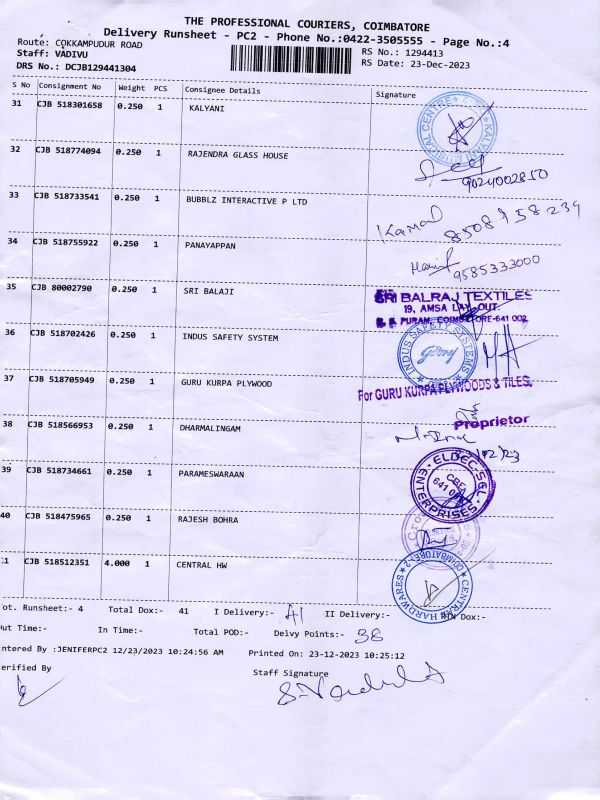 THE PROFESSIONAL COURIERS, COIMBATORE
Delivery Runsheet - PC2 - Phone No.:0422-3505555 - Page No.:4
Route: COKKAMPUDUR ROAD
Staff: VADIVU
DRS No.: DCJB129441304
RS No.: 1294413
RS Date: 23-Dec-2023
S No Consignment No Weight PCS Consignee Details Signature
31 CJB 518301658 0.250 1 KALYANI
KALYANI MEDICAL CENTRE
32 CJB 518774094 0.250 1 RAJENDRA GLASS HOUSE
9024002850
33 CJB 518733541 0.250 1 BUBBLZ INTERACTIVE P LTD
Kamal 8508938234
34 CJB 518755922 0.250 1 PANAYAPPAN
9585333000
35 CJB 80002790 0.250 1 SRI BALAJI
SRI BALRAJ TEXTILES
19, AMSA LAY-OUT.
PURAM, COIMBATORE-641 002
36 CJB 518702426 0.250 1 INDUS SAFETY SYSTEM
INDUS SAFETY SYSTEMS
Godrej
37 CJB 518705949 0.250 1 GURU KURPA PLYWOOD
For GURU KURPA PLYWOODS & TILES,
Proprietor
38 CJB 518566953 0.250 1 DHARMALINGAM
39 CJB 518734661 0.250 1 PARAMESWARAAN
ELDEC-SEL ENTERPRISES
CBE
40 CJB 518475965 0.250 1 RAJESH BOHRA
CJB 518512351 4.000 1 CENTRAL HW
CENTRAL HARDWARES COIMBATORE-2
ot. Runsheet:- 4 Total Dox:- 41 I Delivery:- 41 II Delivery:- Dox:-
ut Time:- In Time:- Total POD:- Delvy Points:- 38
ntered By :JENIFERPC2 12/23/2023 10:24:56 AM Printed On: 23-12-2023 10:25:12
erified By Staff Signature